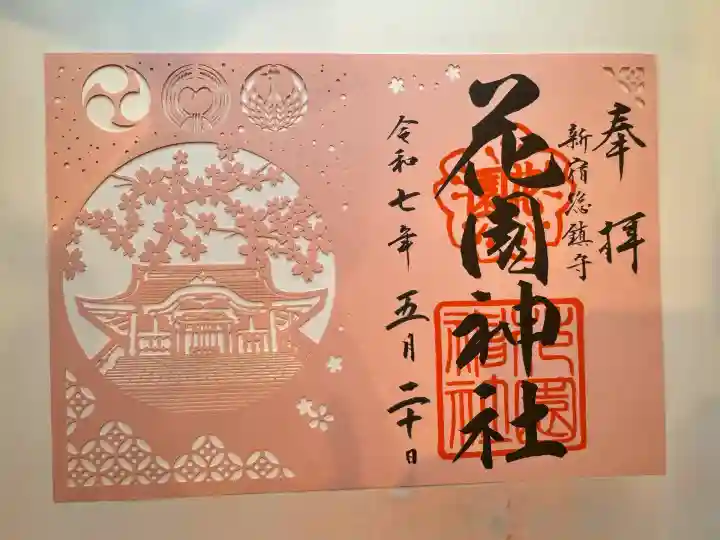 奉拝
新宿総鎮守
花園神社
令和七年 五月二十日